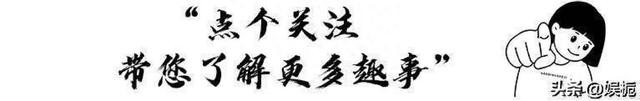 “点个关注
带您了解更多趣事”
头条@娱扼